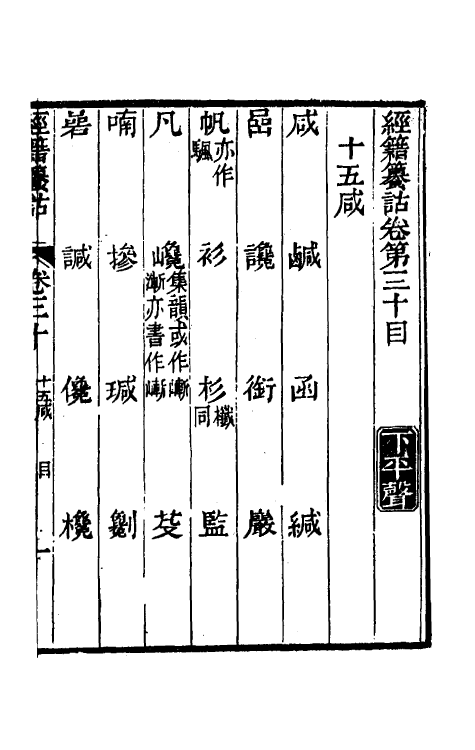 經籍籑詁卷第三十目 下平聲
十五咸
咸 鹹 函 緘
嵒 讒 銜 巖
帆亦作颿 衫 杉檆同 監
凡 巉集韻或作嶃漸亦書作嶄 芟
喃 摻 瑊 劖
諴 儳 欃
經籍籑詁 卷三十 十五咸 目 一